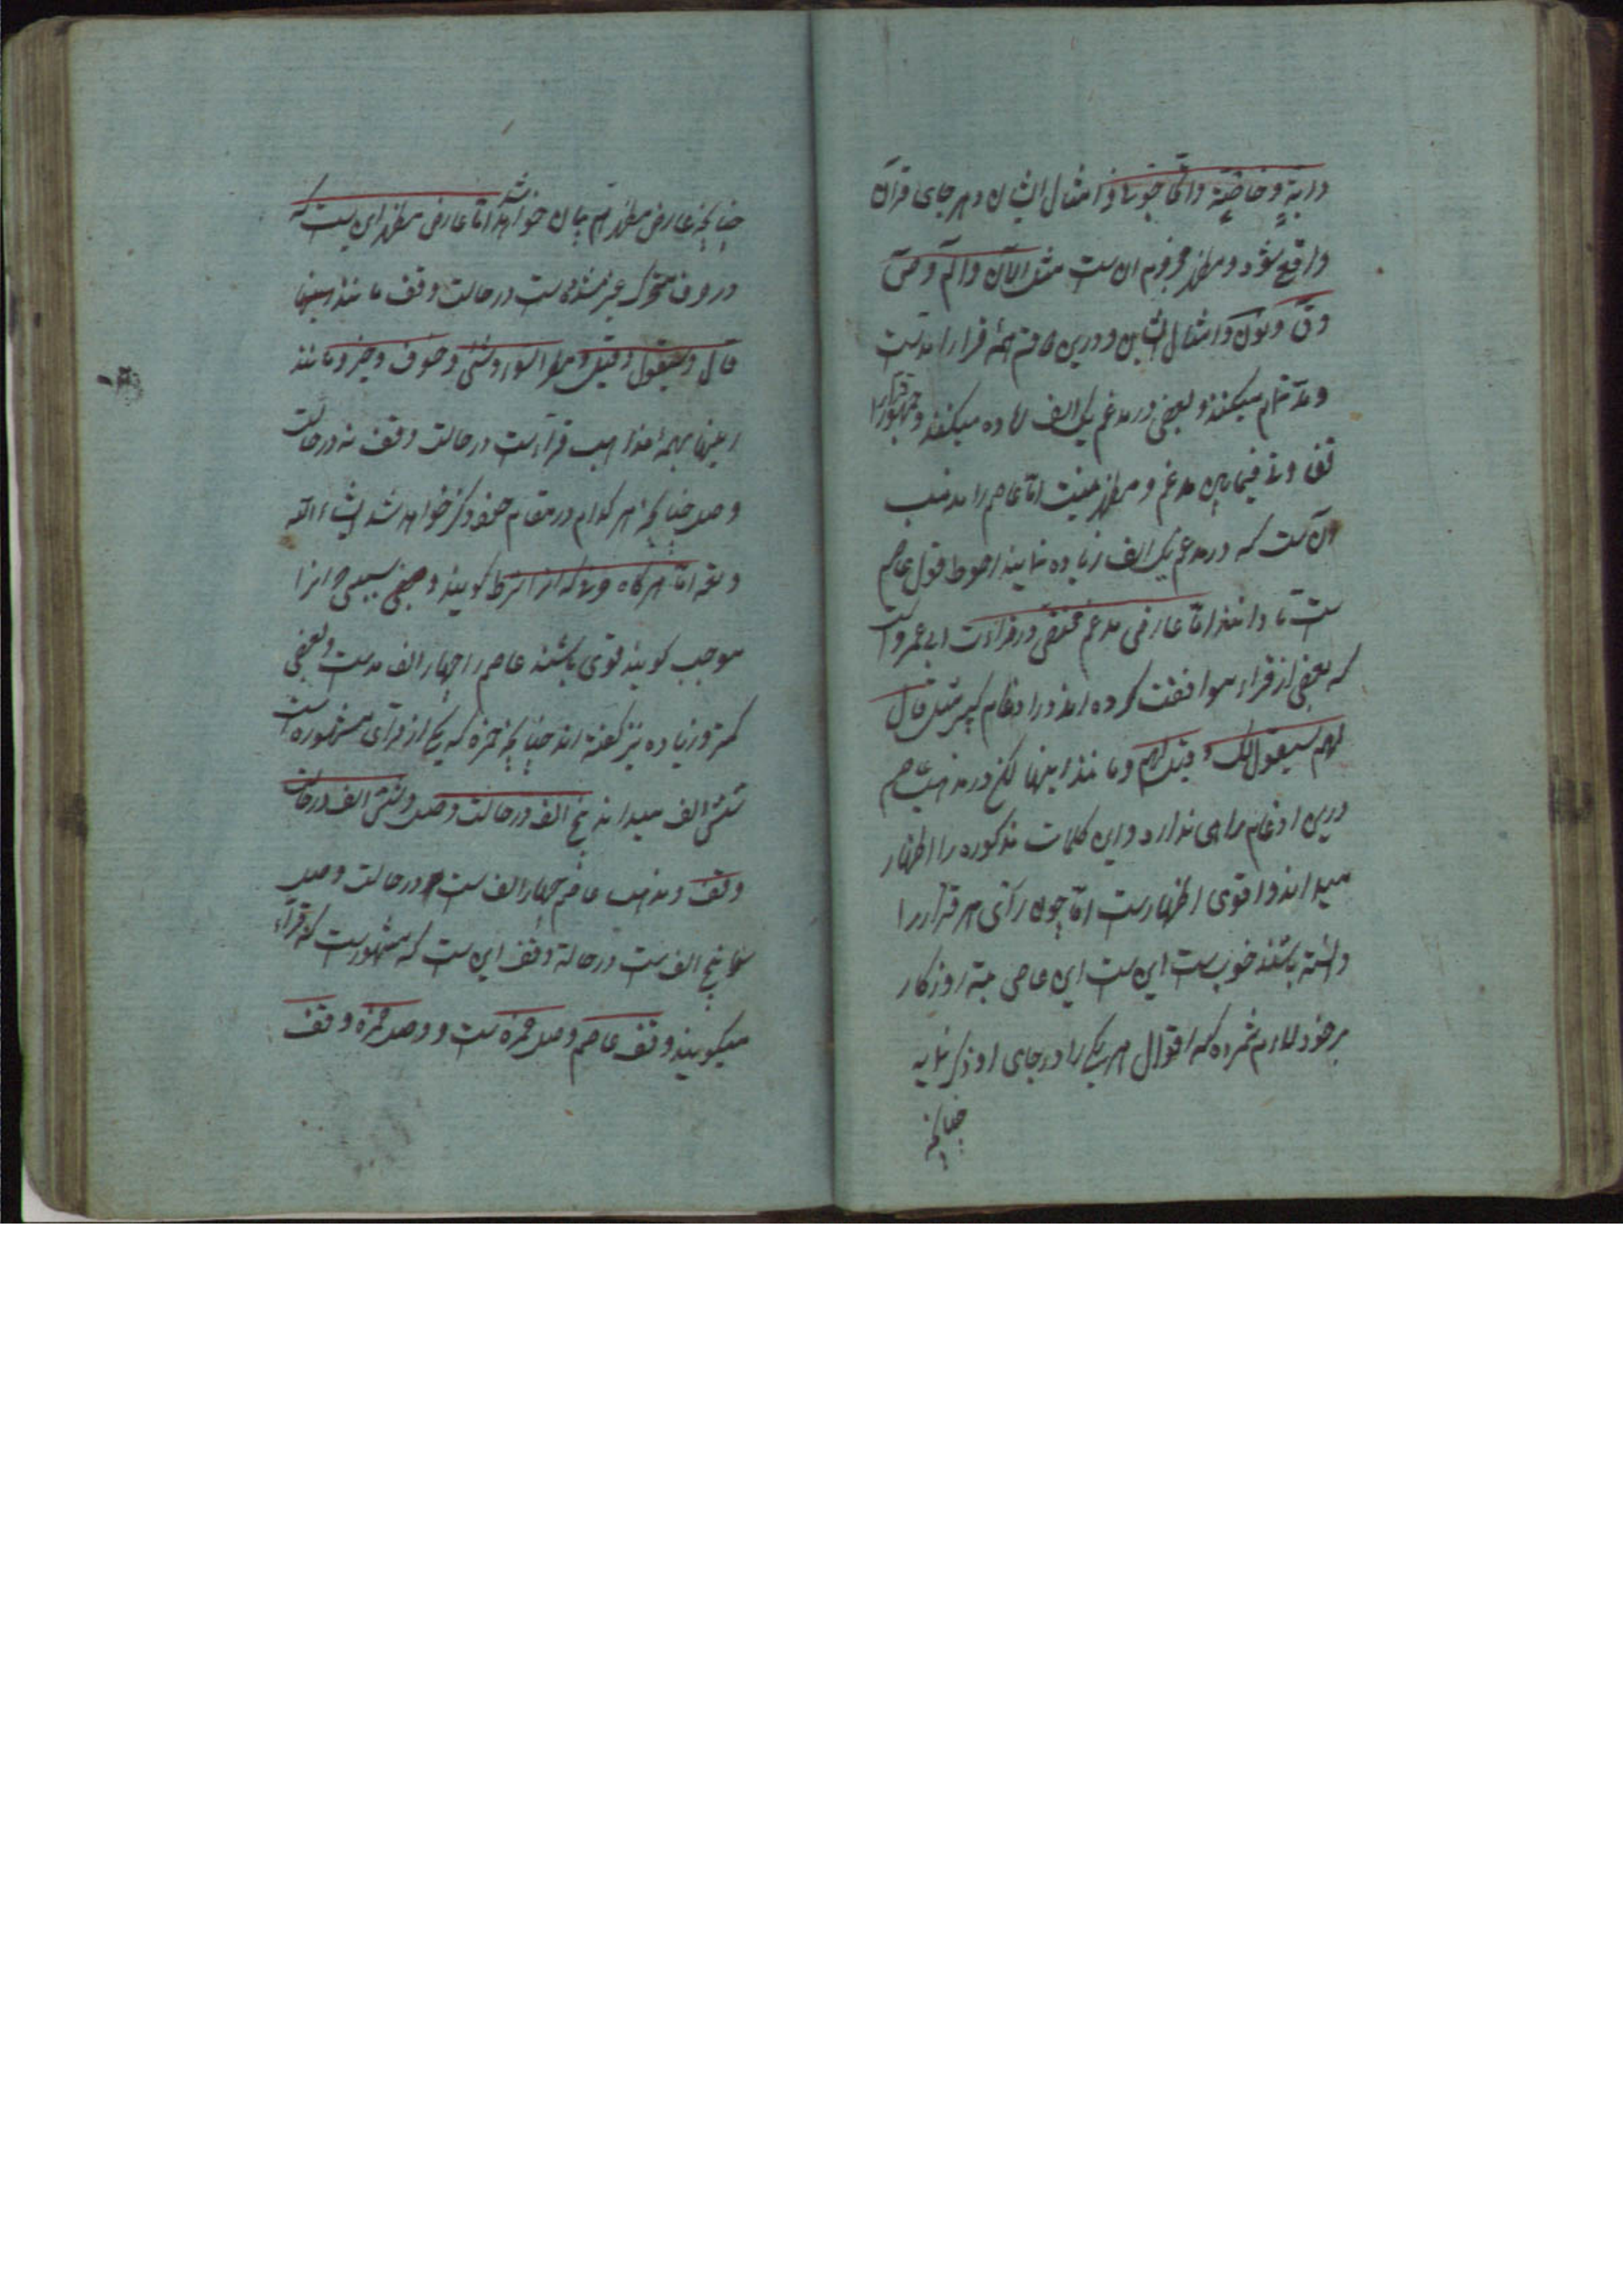 دابة و خاصّة و اتحاجّونّی و امثال ایشان در هر جای قرآن
واقع شود و مظهر مجزوم آن ست مثل آلآن و الٓم و صٓ
و قٓ و نون و امثال ایشان و درین قسم همه قرا را مدست
و مد تمام میکنند و بعضی در مدغم یک الف زیاده میکنند و جمهور قراء را
فیما بین مدغم و مظهر نیست اما عاصم را مذهب
آن ست که در مدغم یک الف زیاده نمایند احوط قول عاصم
ست تا دانند اما عارضی مدغم مختص در قراءت ابی عمرو است
که بعضی از قراء موافقت کرده اند در ادغام کبیر مثل قال
لهم سیقول لک و قیل لهم و مانند اینها لکن در مذهب عاصم
درین ادغام راهی ندارد و این کلمات مذکوره را اظهار
میدانند و اقوی اظهارست اما چون رای هر قرا را
دانسته باشند خوب ست این ست این عاصی روزکار
بر خود لازم شمرده که اقوال هر یکی را در جای او ذکر نماید
چنانچه
چنانچه عارض مظهر هم بیان خواهد شد اما عارضی مظهر این ست که
در وقف متحرک غیر مشدد است در حالت وقف مانند اینها
قال و سیقول و قیل و مطر السوء و شیء و خوف و خیر و مانند
اینها بهمه مذاهب قراءست در حالت وقف نه در حالت
وصل چنانچه هر کدام در مقام خود ذکر خواهد شد انشاء الله
و تعه اما هر کاه مد که انرا شرط کویند و بعضی سبب انرا
موجب کویند قوی باشند عاصم را چهار الف مدست و بعضی
کمتر و زیاده نیز کفته اند چنانچه حمزه که یکی از قرای مشهوره است
شش الف میداند پنج الف در حالت وصل و شش الف در حالت
وقف و مذهب عاصم چهار الف ست در حالت وصل
و پنج الف ست در حالة وقف این ست که مشهورست که قراء
میکویند وقف عاصم وصل حمزه ست و وصل حمزه وقف